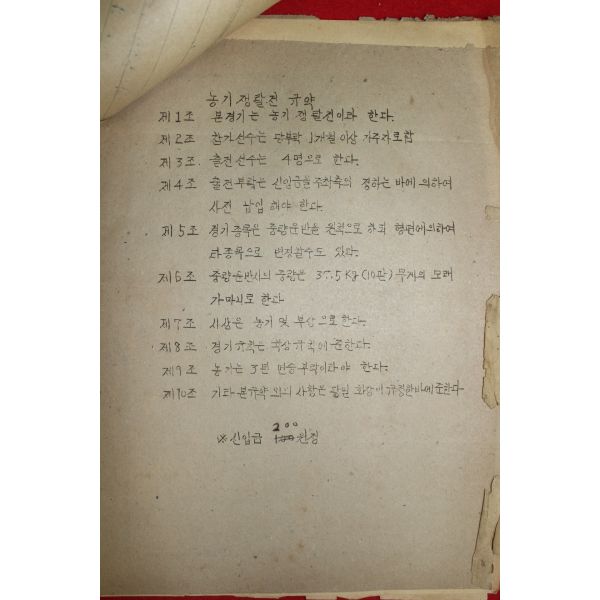 농기쟁탈전 규약
제1조 본경기는 농기쟁탈전이라 한다.
제2조 참가선수는 당부락 1개월이상 거주자로함
제3조 출전선수는 4명으로 한다.
제4조 출전부락은 신입금을 주최측의 정하는 바에 의하여
사전 납입 해야 한다.
제5조 경기종목은 중량운반을 원칙으로 하되 형편에의하여
타종목으로 변경할수도 있다.
제6조 중량운반시의 중량은 37.5Kg (10관) 무게의 모래
가마니로 한다
제7조 시상은 농기 및 부상으로한다.
제8조 경기규칙은 육상규칙에 준한다.
제9조 농기는 3년 연승부락이라야 한다.
제10조 기타 본규약 외의 사항은 당일 회장이 규정한바에준한다
200
※신입금 100원정